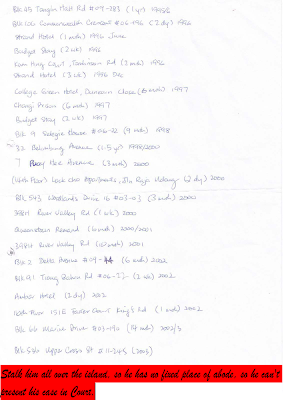 Blk 45 Tanglin Halt Rd #09-383 (1 yr) 1995/6
Blk 120 Commonwealth Crescent #06-196 (3 dy) 1996
Strand Hotel (1 mth) 1996 June
Budget Stay (2 wk) 1996
Kim Hoy Court, Tomlinson Rd (2 mth) 1996
Strand Hotel (3 wk) 1996 Dec
College Green Hotel, Dunearn Close (6 mth) 1997
Changi Prison (6 mth) 1997
Budget Stay (2 wk) 1997
Blk 9 Selegie House #06-22 (9 mth) 1998
Balmoral Avenue (1.5 yr) 1998/2000
7 Hee Avenue (3 mth) 2000
(14th Floor) Apartments, (2 dy) 2000
Blk 543 Woodlands Drive 16 #03-03 (3 mth) 2000
River Valley Rd (1 wk) 2000
Queenstown Remand (6 mth) 2000/2001
River Valley Rd (10 mth) 2001
Blk 2 Delta Avenue #19-44 (6 mth) 2002
Blk 91 Tiong Bahru Rd (2 wk) 2002
Amber Hotel (2 dy) 2002
10th Floor King's Rd (1 mth) 2002
Blk 66 Marine Drive #03-90 (14 mth) 2002/3
Blk 536 Upper Cross St #11-245 (2003)
Stalk him all over the island, so he has no fixed place of abode, so he can't
present his case in Court.